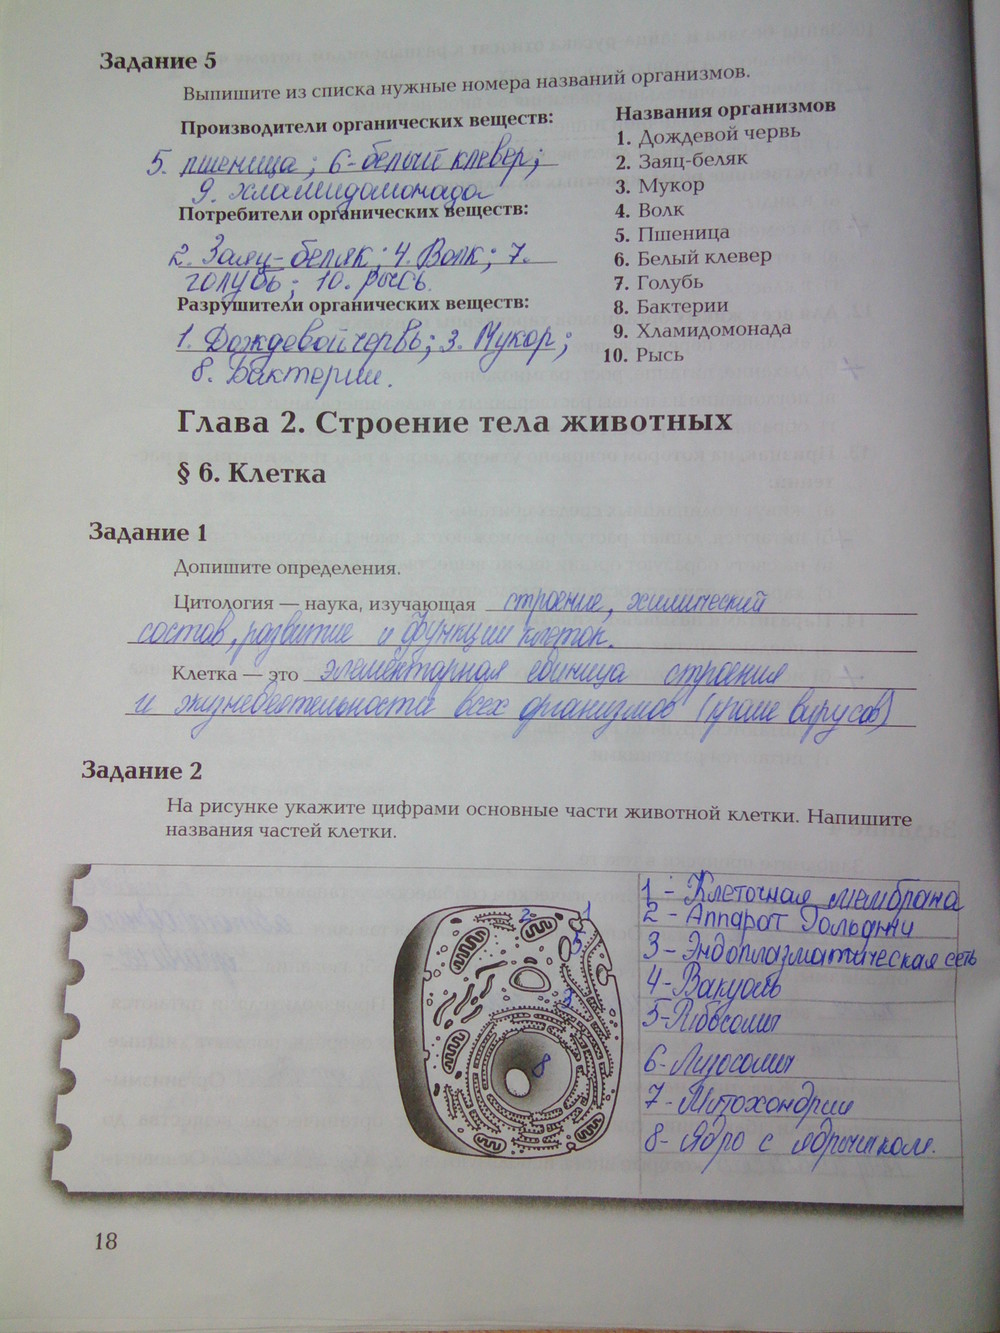 Задание 5
Выпишите из списка нужные номера названий организмов.
Производители органических веществ:
5. пшеница; 6-белый клевер;
9. хламидомонада
Потребители органических веществ:
2. Заяц-беляк; 4. Волк; 7.
голубь; 10. рысь.
Разрушители органических веществ:
1. Дождевой червь; 3. Мукор;
8. Бактерии.
Названия организмов
1. Дождевой червь
2. Заяц-беляк
3. Мукор
4. Волк
5. Пшеница
6. Белый клевер
7. Голубь
8. Бактерии
9. Хламидомонада
10. Рысь
Глава 2. Строение тела животных
§ 6. Клетка
Задание 1
Допишите определения.
Цитология — наука, изучающая строение, химический
состав, развитие и функции клеток.
Клетка — это элементарная единица строения
и жизнедеятельности всех организмов (кроме вирусов)
Задание 2
На рисунке укажите цифрами основные части животной клетки. Напишите
названия частей клетки.
1 - Клеточная мембрана
2 - Аппарат Гольджи
3 - Эндоплазматическая сеть
4 - Вакуоль
5 - Рибосомы
6 - Лизосомы
7 - Митохондрии
8 - Ядро с ядрышком.
2
1
5
3
8
18